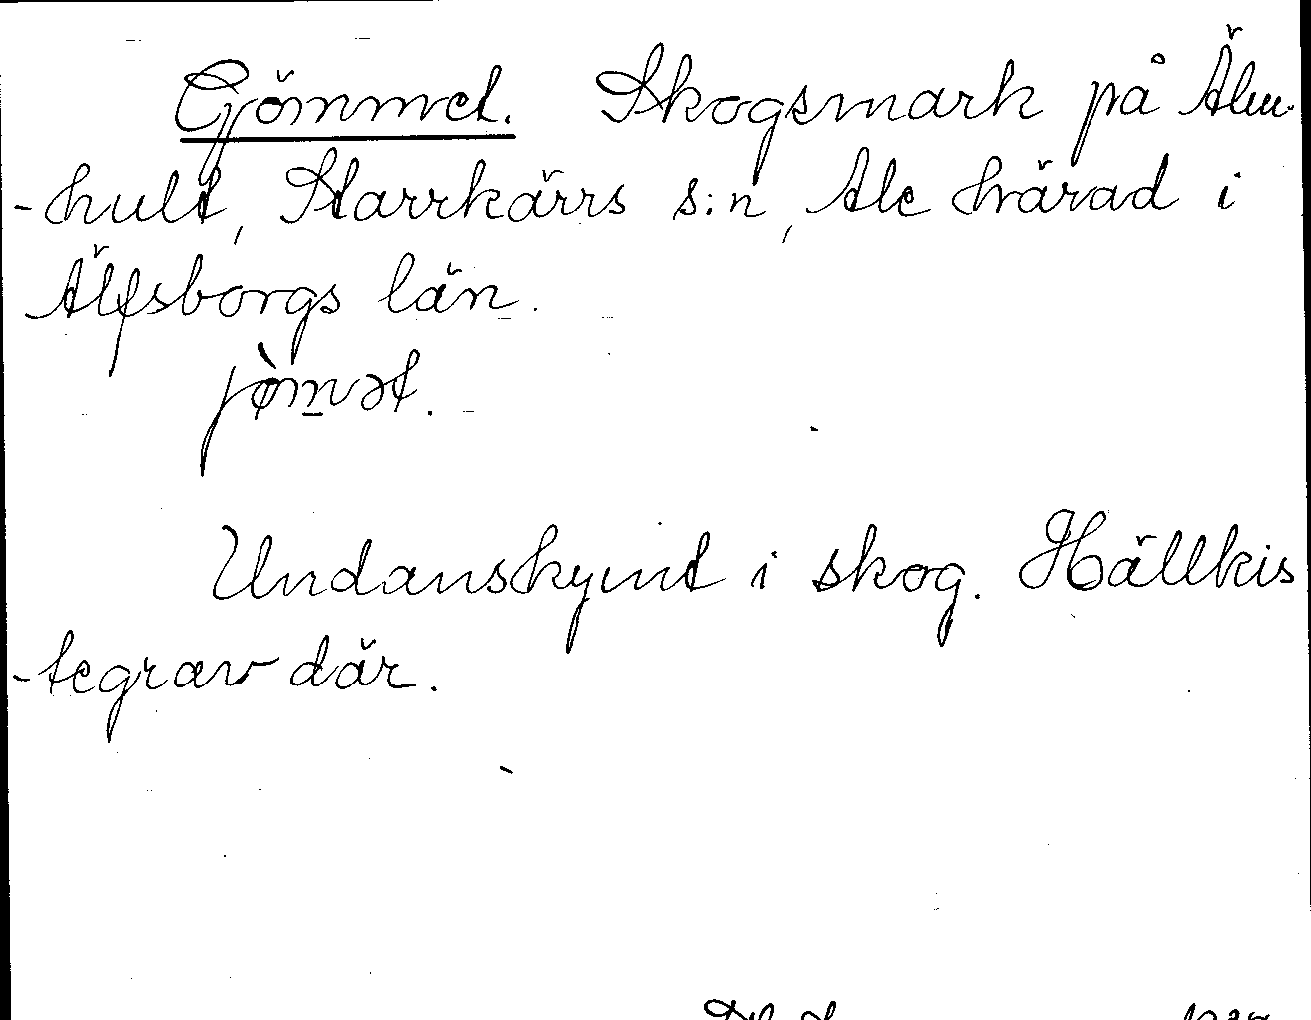 Gjömmet. Skogsmark på Älm-
-hult, Starrkärrs s:n, Ale härad i
Älfsborgs län.
jø̀mət.
Undanskymt i skog. Hällkis
-tegrav där.